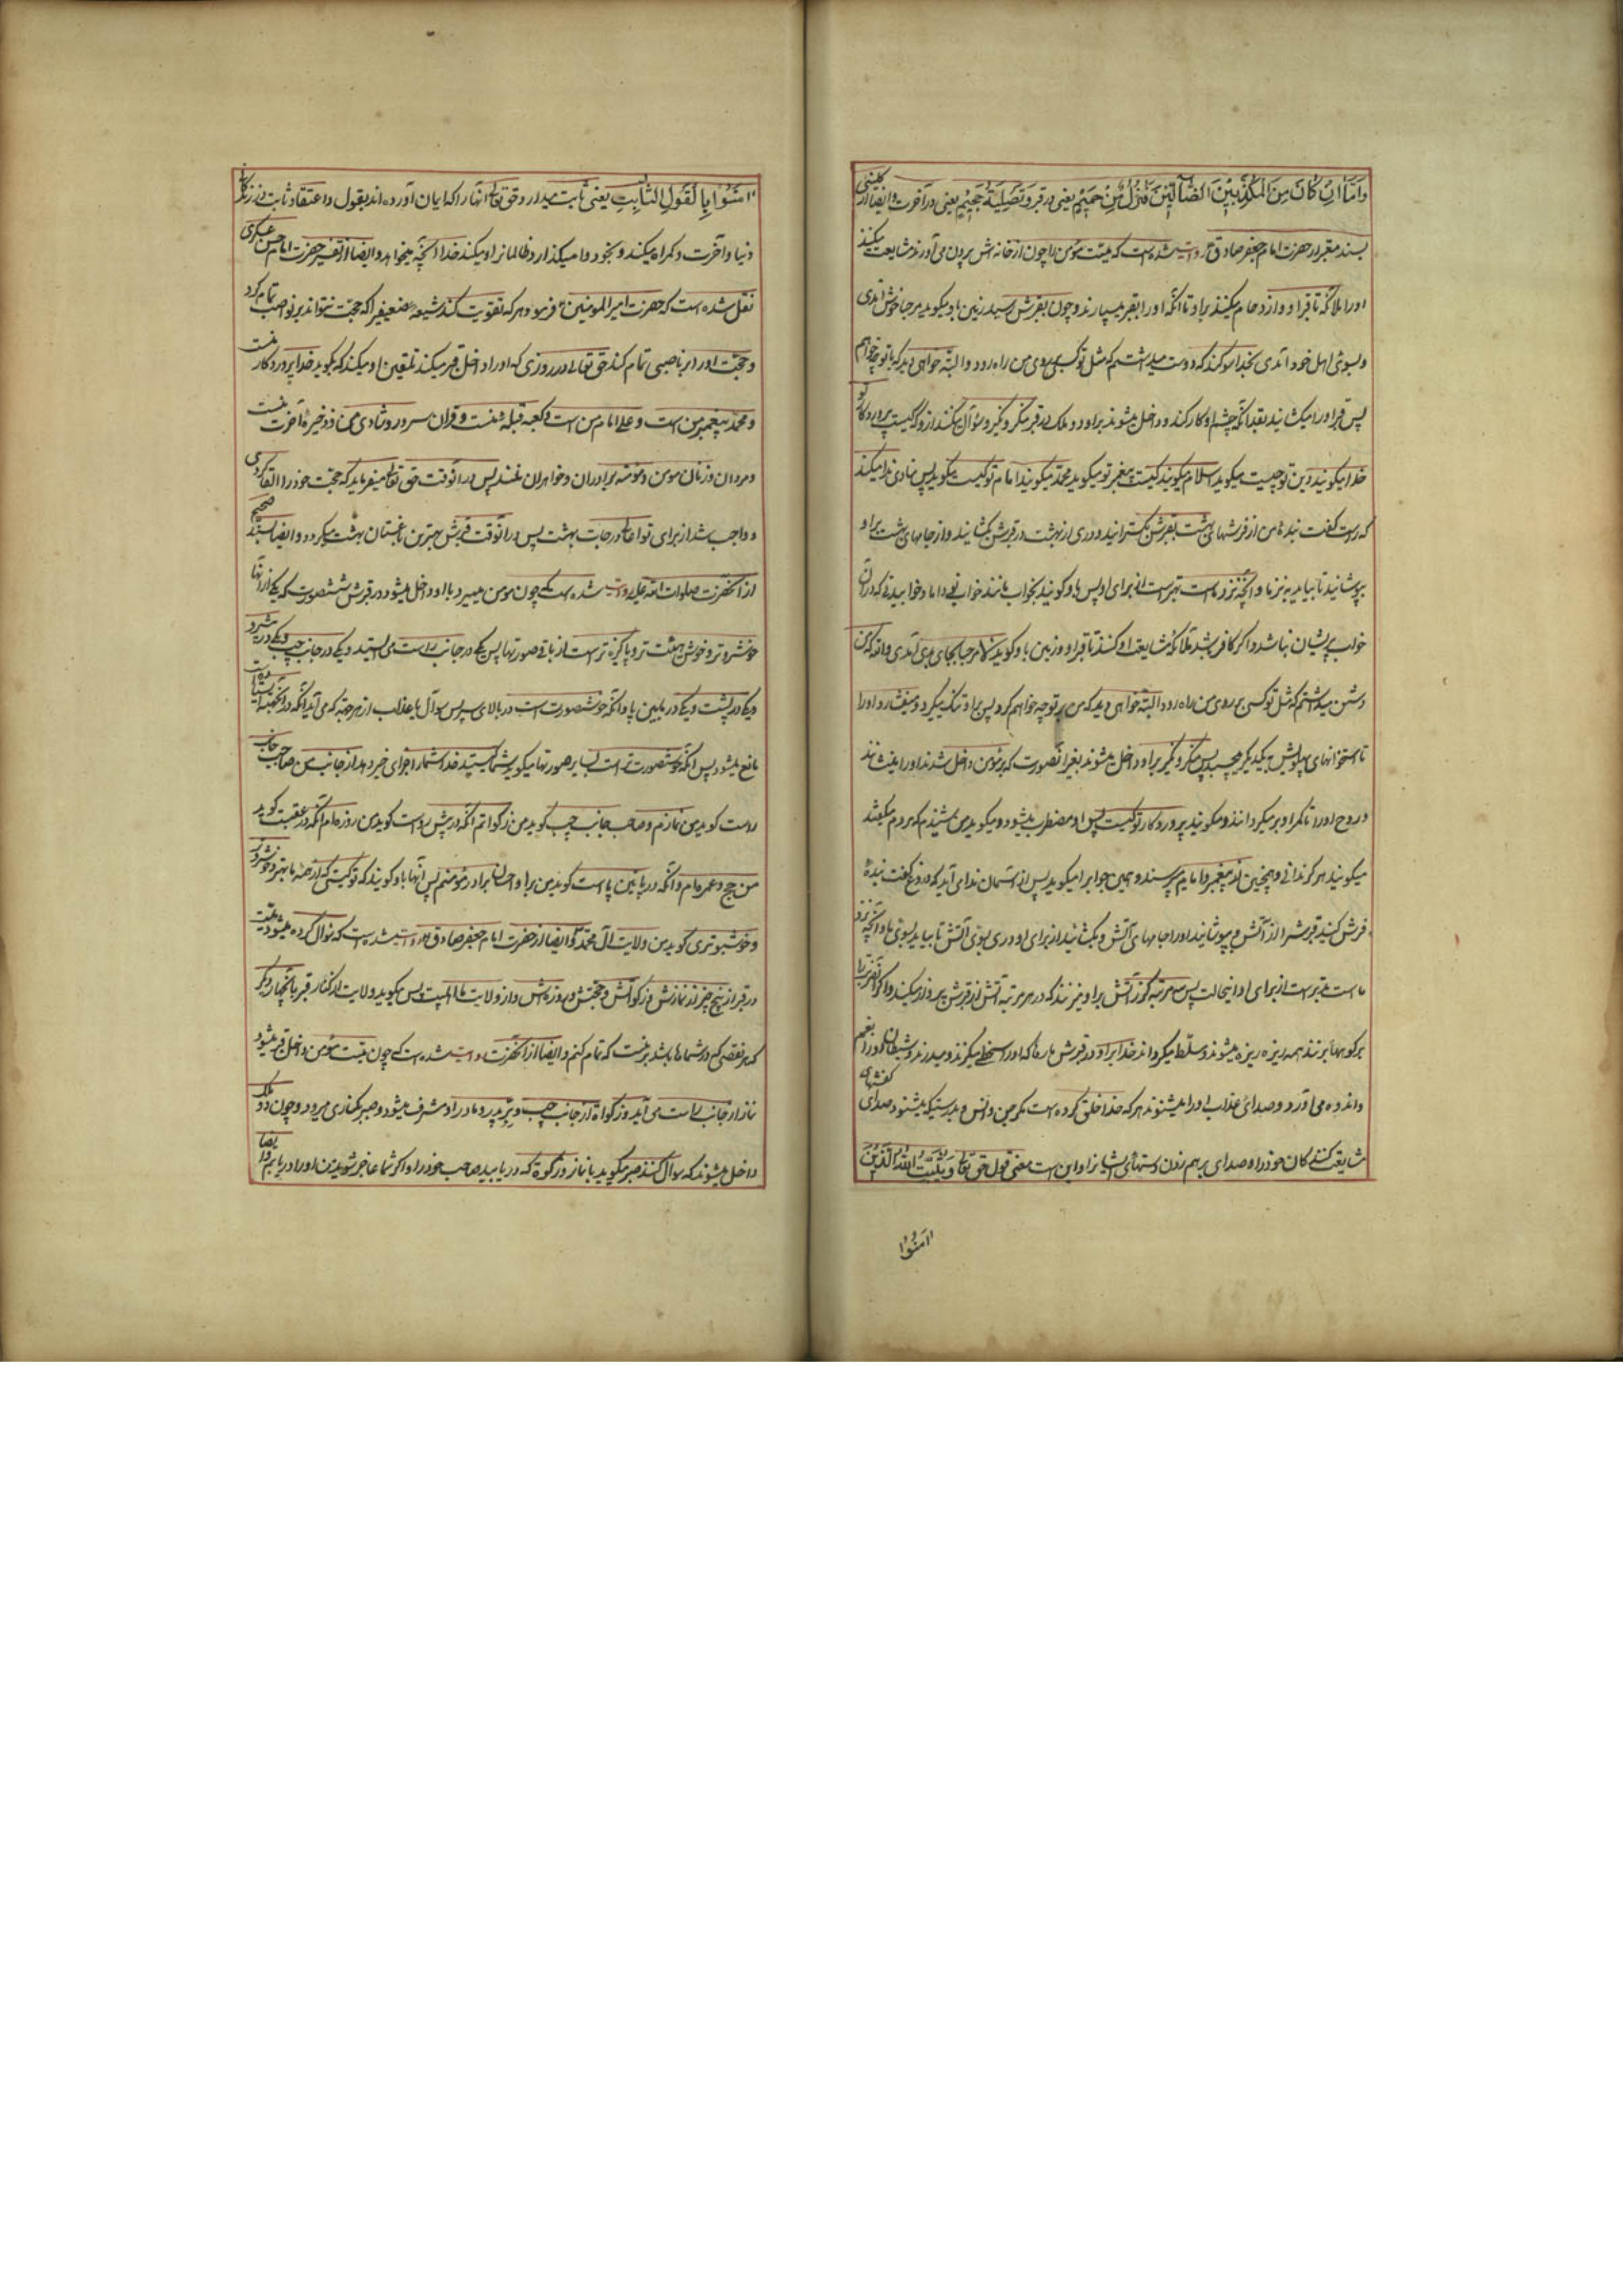 وَاَمَّا اِنْ كَانَ مِنَ الْمُكَذِّبِيْنَ الضَّالِّيْنَ فَنُزُلٌ مِّنْ حَمِيْمٍ يعنى در قبر وَتَصْلِيَةُ جَحِيْمٍ يعنى در آخرت وايضا از كلينى
بسند معتبر از حضرت امام جعفر صادق روايت شده است كه ميت مؤمن را چون از خانه اش بيرون مى آورند مشايعت ميكنند
اورا ملائكه تا قبر او و ازدحام ميكنند بر او تا آنكه اورا بقبر ميسپارند و چون بقبرش رسيد زمين باو ميكويد مرحبا خوش آمدى
و بسوى اهل خود آمدى بخدا سوكند كه دوست ميداشتم كه مثل تو كسى بر روى من راه رود و البته خواهى ديد كه با تو چه خواهم
پس قبر اورا ميكشايند بقدر آنكه چشم او كار كند و داخل ميشوند بر او دو ملك در قبر منكر و نكير و سؤال ميكنند از او كه كيست پروردكار تو
خدا ميكويند دين تو چيست ميكويد اسلام ميكويند كيست پيغمبر تو ميكويد محمد ميكويند امام تو كيست ميكويد پس منادى ندا ميكند
كه راست كفت بنده من از فرشهاى بهشت بقبرش بكسترانيد و درى از بهشت در قبرش بكشانيد و از جامهاى بهشت بر او
بپوشانيد تا بيايد بنزد ما و آنچه نزد ماست بهتر است از براى او پس باو كويند بخواب مانند خوابيدن داماد خوابيدنى كه در آن
خواب پريشان نباشد و اكر كافر باشد ملائكه مشايعت او كنند تا قبر او و زمين باو كويد لا مرحبا بجاى بدى آمدى والله كه من
دشمن ميداشتم كه مثل تو كسى بر روى من راه رود البته خواهى ديد كه من بر تو چه خواهم كرد پس بر او تنك ميكيرد و ميفشارد اورا
تا استخوانهاى پهلويش بيكديكر ميچسبد پس منكر و نكير بر او داخل ميشوند بغير آنصورت كه بر مؤمن داخل شدند اورا مينشانند
و روح اورا تا كمر او بر ميكردانند و ميكويند پروردكار تو كيست پس او مضطرب ميشود و ميكويد من شنيدم كه مردم ميكفتند
ميكويند هركز ندانى و همچنين از پيغمبر و امام ميپرسند و همين جواب را ميكويد پس از آسمان نداى آيد كه دروغ كفت بنده
فرش كنيد قبرش را از آتش و بپوشانيد اورا جامهاى آتش و بكشائيد از براى او درى بسوى آتش تا بيايد بسوى ما و آنچه نزد
ماست بدتر است از براى او از اينحالت پس سه مرتبه كرز آتش بر او ميزنند كه در هر مرتبه آتش از قبرش پرواز ميكند و اكر آن ضربت را
بر كوهها بزنند همه ريزه ريزه ميشوند و مسلط ميكرداند خدا بر او در قبرش مارها كه اورا بسختى ميكزند و ميدرند و شيطان اورا بغم
و اندوه مى آورد و صداى عذاب اورا ميشنوند هر كه خدا خلق كرده است مكر جن و انس و بدرستيكه ميشنود صداى كفشهاى
مشايعت كنندكان خود را و صداى برهم زدن دستهاى ايشانرا و اين است معنى قول حق تعالى يُثَبِّتُ اللهُ الَّذِيْنَ
اٰمَنُوْا
اٰمَنُوْا بِالْقَوْلِ الثَّابِتِ يعنى ثابت ميدارد حق تعالى آنها را كه ايمان آورده اند بقول و اعتقاد ثابت در زندكانى
دنيا و آخرت و كمراه ميكند و بخود واميكذارد ظالمانرا و ميكند خدا آنچه ميخواهد و ايضا از تفسير حضرت امام حسن عسكرى
نقل شده است كه حضرت امير المومنين فرمود هر كه تقويت كند شيعه ضعيفرا كه حجت نتواند بر نواصب تمام كرد
و حجت اورا بر ناصبى تمام كند حق تعالى در روزى كه اورا داخل قبر ميكند تلقين او ميكند كه بكويد خدا پروردكار منست
و محمد پيغمبر من است و على امام من است و كعبه قبله منست و قران سرور و شادى من و ذخيره آخرت منست
و مردان و زنان مومن و مومنه برادران و خواهران منند پس در آنوقت حق تعالى ميفرمايد كه حجت خود را القا كردى
و واجب شد از براى تو اعلى درجات بهشت پس در آنوقت قبرش بهترين باغستان بهشت ميكردد و ايضا بسند صحيح
از آنحضرت صلوات الله عليه روايت شده است كه چون مومن ميميرد با او داخل ميشود در قبرش شش صورت كه يكى از آنها
خوشروتر و خوش هيئت تر و پاكيزه تر است از باقى صورتها پس يكى در جانب راست مى ايستد و يكى در جانب چپ و يكى در پيش رو
و يكى در پشت و يكى در پايين پا و آنكه خوشصورت است در بالاى سر پس سوال يا عذاب از هر جهت كه مى آيد آنكه در آنجهت ايستاده است
مانع ميشود پس آنكه خوشصورت است بساير صورتها ميكويد شما كيستيد خدا شما را جزاى خير دهد از جانب من صاحب جانب
راست كويد من نمازم و صاحب جانب چپ كويد من زكواتم آنكه در پيش روست كويد من روزه ام آنكه در عقبست كويد
من حج و عمره ام و آنكه در پايين پا است كويد من بر او احسان برادر مؤمنم پس آنها باو كويند كه تو كيستى كه از همه ما بهتر و خوشروتر
و خوشبوترى كويد من ولايت آل محمدم و ايضا از حضرت امام جعفر صادق روايت شده است كه سوال كرده ميشود ميت
در قبر از پنج چيز از نمازش و زكواتش و حجتش و روزه اش و از ولايت ما اهلبيت پس ميكويد ولايت از كنار قبر بآنچهار ديكر
كه هر نقصى كه در شماها باشد بر منست كه تمام كنم و ايضا از آنحضرت روايت شده است كه چون ميت مؤمن داخل قبر ميشود
نماز از جانب راست مى آيد و زكواة از جانب چپ و بِرّ پدر و مادر بر او مشرف ميشود و صبر بكنارى ميرود و چون دو ملك
داخل ميشوند كه سوال كنند صبر ميكويد با نماز و زكوة كه دريابيد صاحب خود را و اكر شما عاجز شويد من اورا دريابم و ايضا